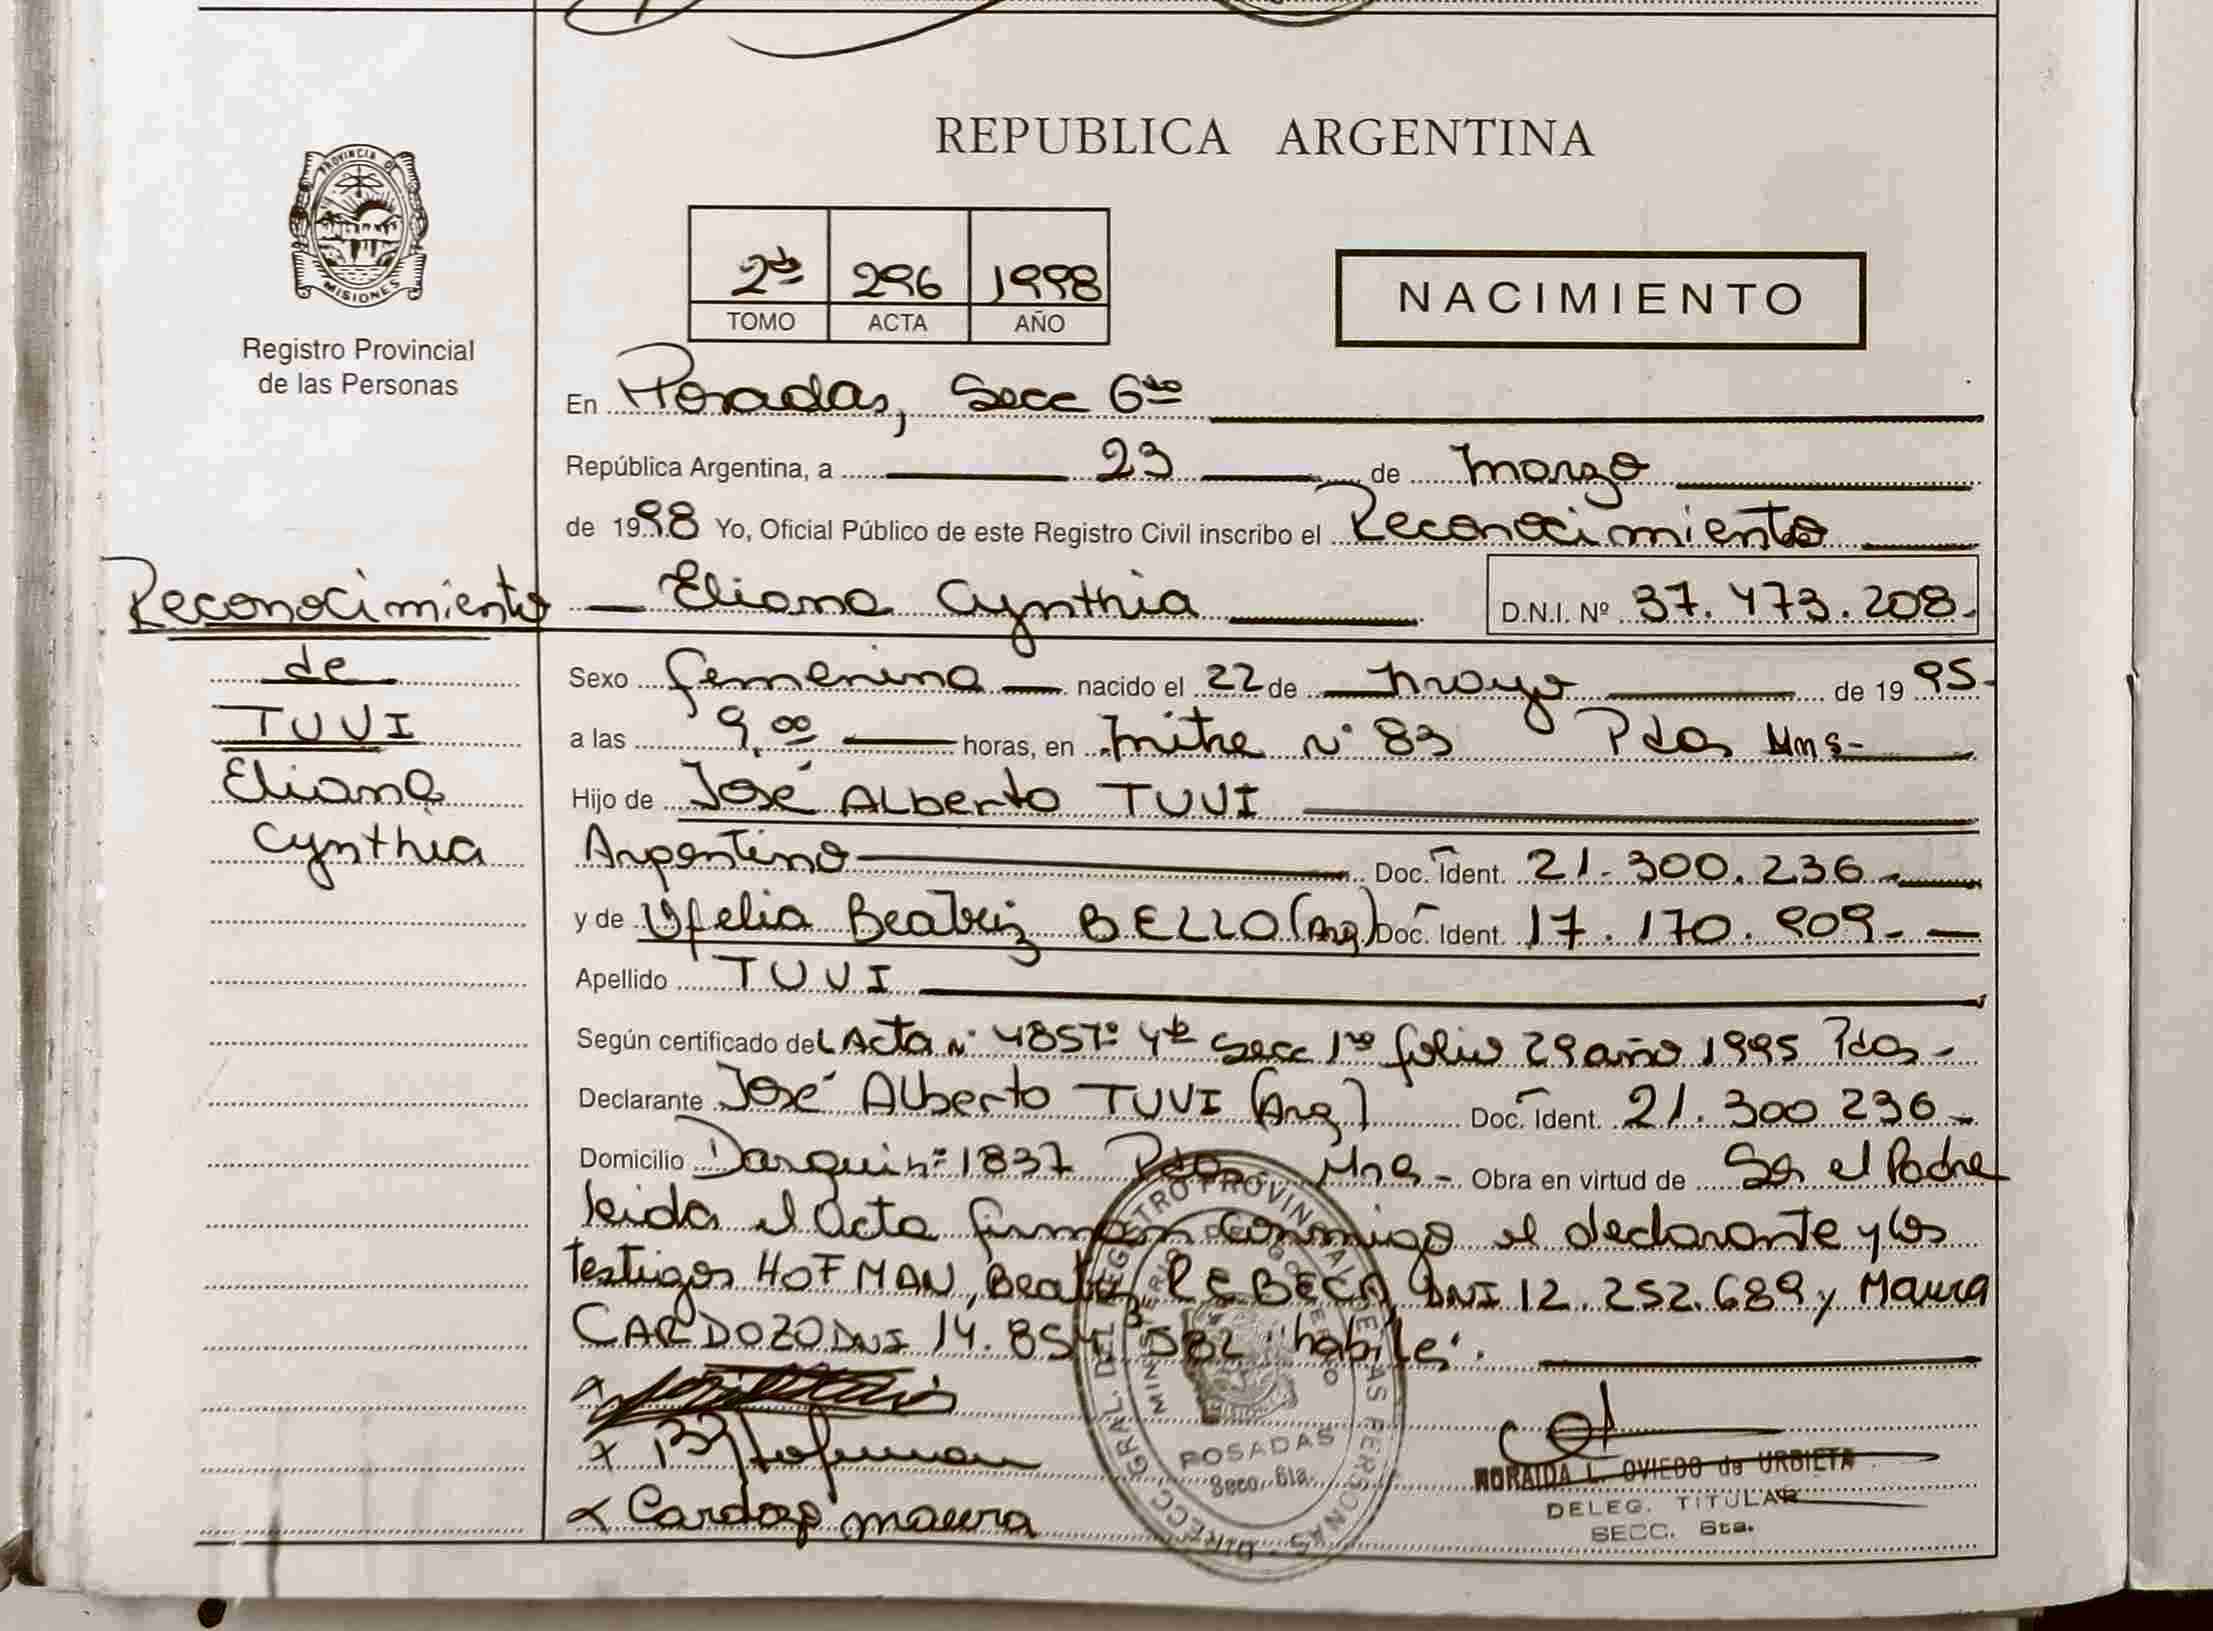 REPUBLICA ARGENTINA
PROVINCIA DE
MISIONES
Registro Provincial
de las Personas
2do 296 1998
TOMO ACTA AÑO
NACIMIENTO
En Posadas, Secc 6ta
República Argentina, a 23 de marzo
de 1998 Yo, Oficial Público de este Registro Civil inscribo el Reconocimiento
Eliana Cynthia D.N.I. Nº 37.473.208.
Reconocimiento
de
TUVI
Eliana
Cynthia
Sexo femenina nacido el 22 de mayo de 1995-
a las 9,00 horas, en mitre n° 83 Pdas Mns-
Hijo de José Alberto TUVI
Argentino Doc. Ident. 21.300.236
y de Ofelia Beatriz BELLO (Arg) Doc. Ident. 17.170.909.-
Apellido TUVI
Según certificado del Acta n° 4857° 4to Secc 1ra folio 29 año 1995 Pdas-
Declarante José Alberto TUVI (Arg) Doc. Ident. 21.300236-
Domicilio Darqui nº 1837 Pdas Mns- Obra en virtud de Ser el Padre
leida el Acta firman conmigo el declarante y los
testigos HOFMAN, Beatriz REBECA, DNI 12.252.689 y Maura
CARDOZO DNI 14.854.582 "habiles".
B Hofman
Cardozo maura
DIRECC. GRAL. DEL REGISTRO PROVINCIAL DE LAS PERSONAS
MINISTERIO DE GOBIERNO
POSADAS
Secc. 6ta.
NORAIDA L. OVIEDO de URBIETA
DELEG. TITULAR
SECC. 6ta.